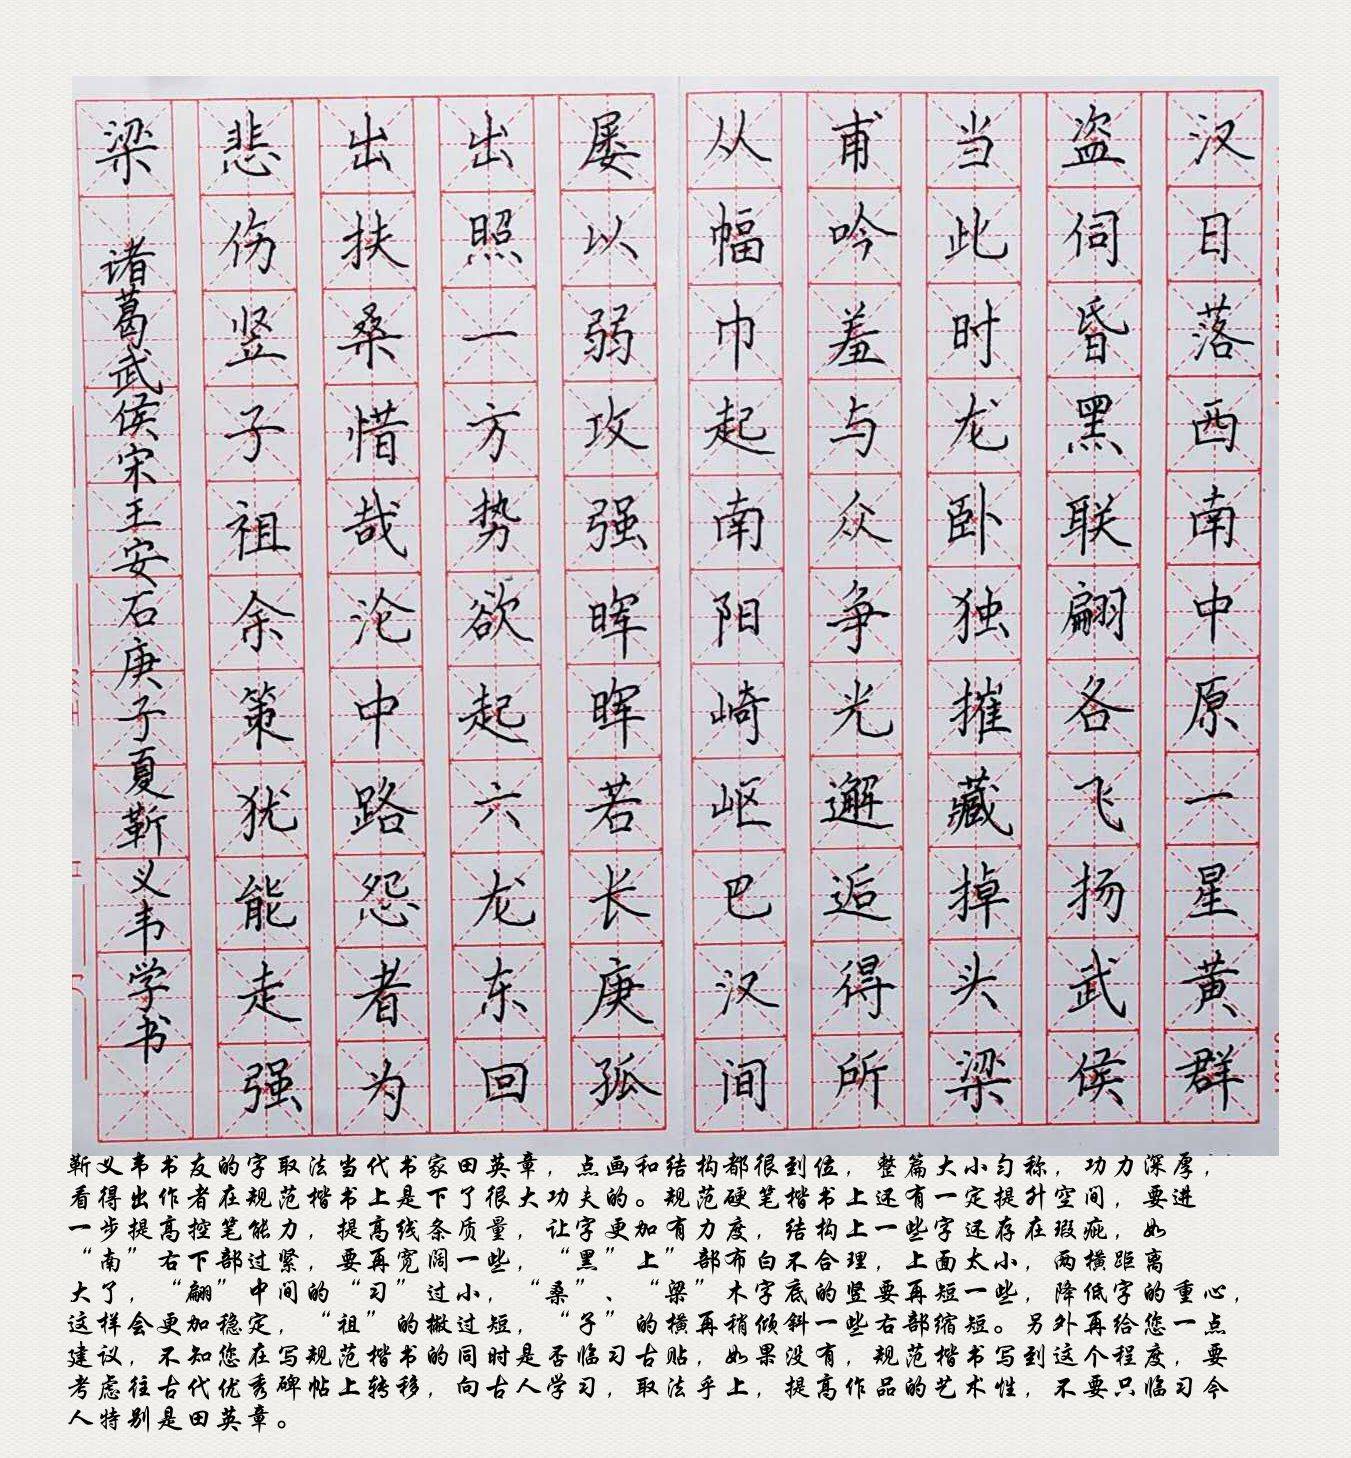 汉日落西南中原一星黄群
盗伺昏黑联翩各飞扬武侯
当此时龙卧独摧藏掉头梁
甫吟羞与众争光邂逅得所
从幅巾起南阳崎岖巴汉间
屡以弱攻强晖晖若长庚孤
出照一方势欲起六龙东回
出扶桑惜哉沦中路怨者为
悲伤竖子祖余策犹能走强
梁 诸葛武侯宋王安石庚子夏靳义韦学书
靳义韦书友的字取法当代书家田英章，点画和结构都很到位，整篇大小匀称，功力深厚，
看得出作者在规范楷书上是下了很大功夫的。规范硬笔楷书上还有一定提升空间，要进
一步提高控笔能力，提高线条质量，让字更加有力度，结构上一些字还存在瑕疵，如
“南”右下部过紧，要再宽阔一些，“黑”上”部布白不合理，上面太小，两横距离
大了，“翩”中间的“习”过小，“桑”、“梁”木字底的竖要再短一些，降低字的重心，
这样会更加稳定，“祖”的撇过短，“子”的横再稍倾斜一些右部缩短。另外再给您一点
建议，不知您在写规范楷书的同时是否临习古贴，如果没有，规范楷书写到这个程度，要
考虑往古代优秀碑帖上转移，向古人学习，取法乎上，提高作品的艺术性，不要只临习今
人特别是田英章。